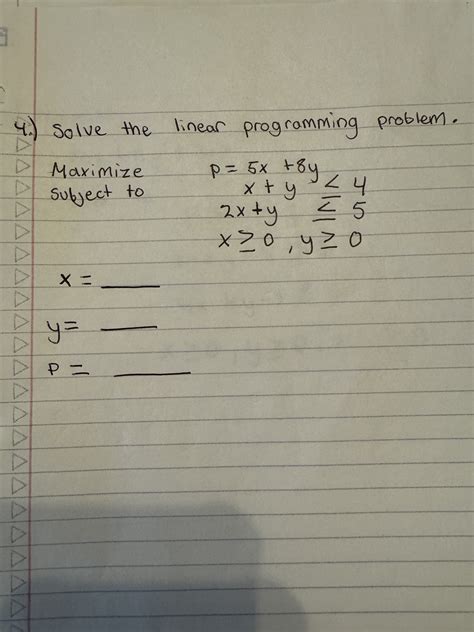 4.) Solve the linear programming problem.
Maximize p = 5x + 8y
subject to x + y ≤ 4
2x + y ≤ 5
x ≥ 0, y ≥ 0
x = ____
y = ____
p = ____